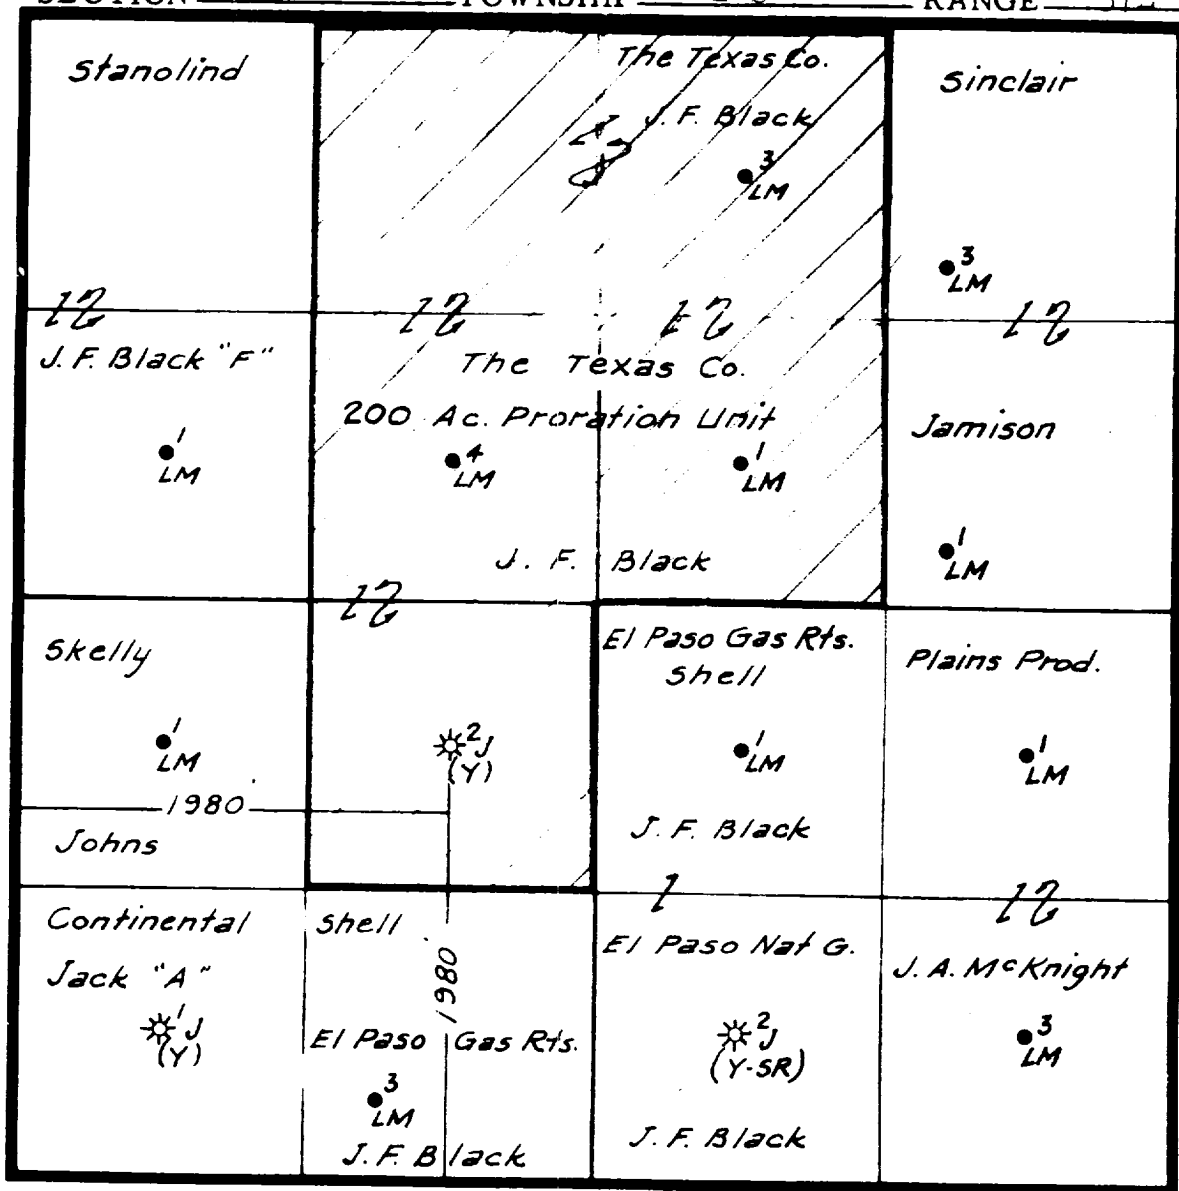 SECTION TOWNSHIP RANGE
Stanolind
The Texas Co.
J. F. Black
3
LM
Sinclair
3
LM
12
12
12
12
J. F. Black "F"
1
LM
The Texas Co.
200 Ac. Proration Unit
4
LM
1
LM
J. F. Black
Jamison
1
LM
12
Skelly
1
LM
1980
Johns
2 J
(Y)
El Paso Gas Rts.
Shell
1
LM
J. F. Black
Plains Prod.
1
LM
1
12
Continental
Jack "A"
1 J
(Y)
Shell
1980
El Paso Gas Rts.
3
LM
J. F. Black
El Paso Nat G.
2 J
(Y-SR)
J. F. Black
J. A. McKnight
3
LM